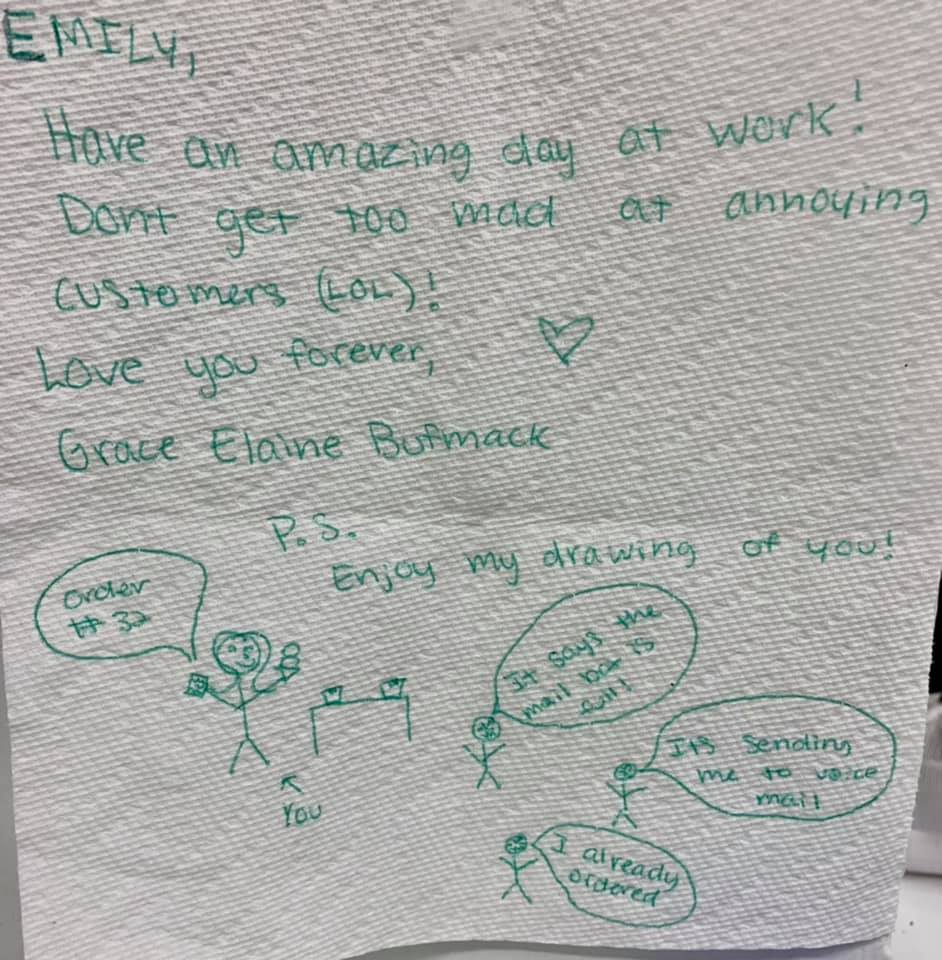 EMILY,
Have an amazing day at work!
Dont get too mad at annoying
customers (LOL)!
Love you forever,
Grace Elaine Bufmack
P.S.
Enjoy my drawing of you!
Order
# 32
It says the
mail box is
full!
Its sending
me to voice
mail
I already
ordered
YOU